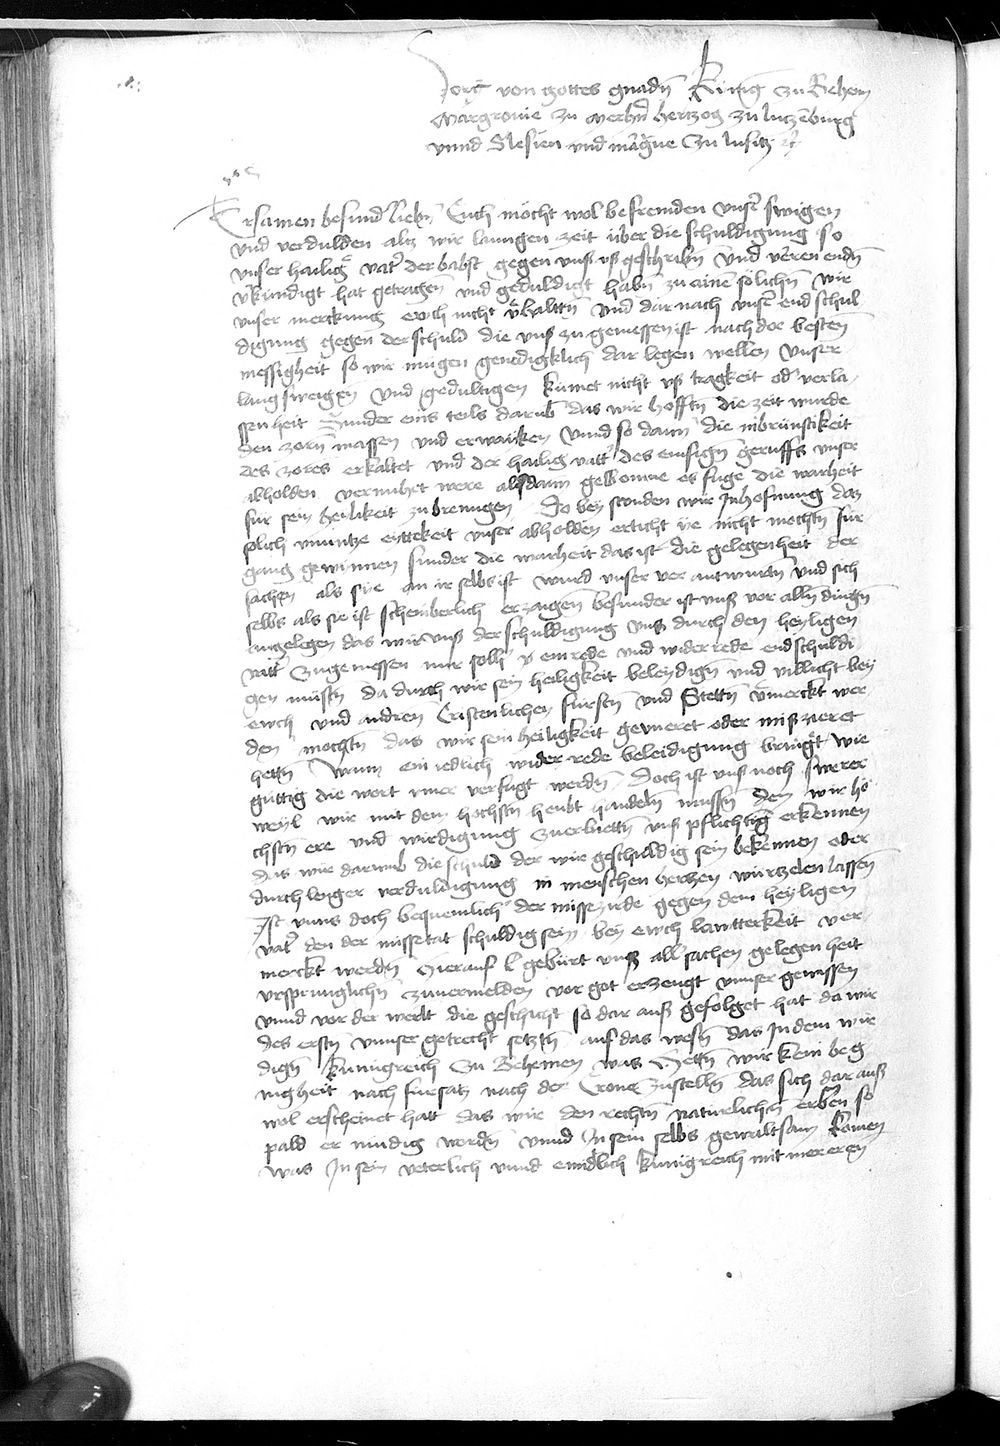 Jorg von gottes gnadn Kunig zu Behem
Margroue zu Merhn hertzog zu lutzemburg
vnnd Slesien vnd margue zu lusitz etc
Ersamen besund liebn Euch mocht wol befremden vnser swigen
vnd verdulden altz wir lanngen zeit uber die schuldigung so
vnser hailiger vater der babst gegen vnß vß geschribn vnd
verkundigt hat getragen vnd geduldigt habn zu einem solichn wir
vnser merckung euch nicht verhaltn vnd dar nach vnser end schul
digung gegen der schuld die vnß zu gemessen ist nach der besten
messigheit so wir mugen genedigklich dar legen wellen vnser
lang sweigen vnd gedultigen kumet nicht vß tragkeit od verla
ssenheit Sunder eins teils darumb das wir hofftn die zeit wurde
den zorn massen vnd erwaiken vnnd so dann die inbrunstikeit
des zores erkaltet vnd der hailig vatter des emsign geruffs vnser
abholden vermuhet were alßdann gekomme es fuge die warheit
fur sein heilikeit zu brenngen Do bey stunden wir In hofnung daz
solich vnnutze eyttekeit vnser abholden erticht ye nicht mochtn fur
gang gewinnen sunder die warheit das ist die gelegenheit der
sachen als sie an ir selbs ist wurd vnser ver antwurtn vnd sich
selbs als sie ist scheinberlich erzaigen besunder ist vnß vor alln dingn
angelegen das wir vnß der schuldigung vnß durch den heyligen
vatter zugemessen mit einrede vnd wider rede endschuldi
gen mustn da durch wir sein heiligkeit beleydign vnd villicht bey
ewch vnd andren Cristenlichen furstn vnd Stettn vermerckt wer
den mochtn das wir sein heiligkeit geuneret oder mißzieret
hettn Wann ein iedlich wider rede beleidigung bringet wie
guttig die wort imer verfugt werdn Doch ist vnß noch swerer
weyl wir mit dem hochstn heubt handeln mussn den wir ho
chstn ere vnd wirdigung zuerbiettn vnß pflichtig erkennen
das wir darumb die schuld der wir geschuldig sein bekennen oder
durch lenger verduldigung in menschen hertzen wurtzelen lassen
Ist vnns doch bequemlich der missezirde gegen dem heyligen
vater den der missetat schuldig sein bey ewch lautterkeit ver
merckt werdn Hierauf geburt vnß all sachen gelegen heit
vrsprunglichn zuuermelden vor got erzeugt vnnser gewissen
vnnd vor der werlt die geschicht so dar auß gefolget hat da wir
des erstn vnnser getrecht setztn auf das wesn das In dem wir
dign kunigreich zu Behemen was Hettn wir kein beg
nigheit nach fursatz nach der Crone zustelln das sich dar auß
wol erscheinet hatt das wir den rechtn naturlichn erben so
pald er mundig wordn vnnd In sein selbs gewaltsam komen
was In sein veterlich vnnd enidlich kunigreich mit mereren